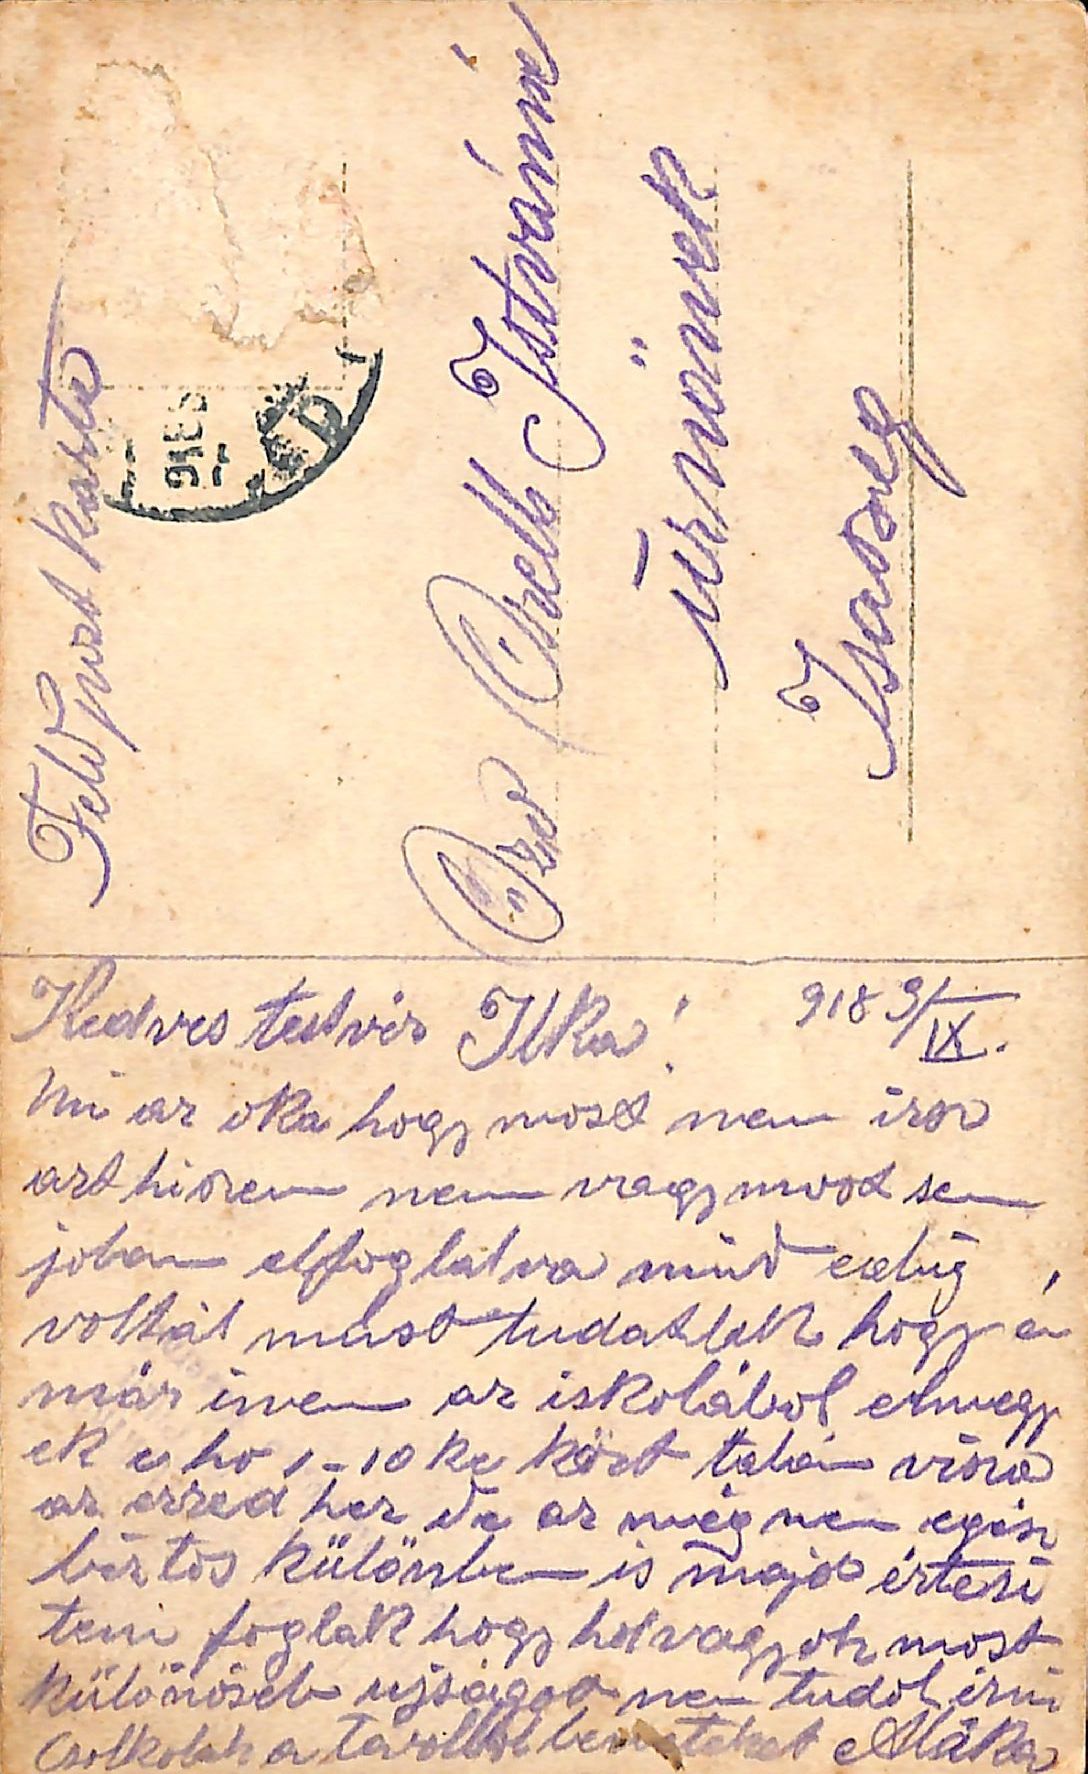 Feldpost karte
918
Özv Cselb Istvánné
úrnőnek
Isaszeg
Kedves testvér Ilka! 918 9/IX.
Mi az oka hogy most nem irsz
azt hiszem nem vagy most sem
joban elfoglalva mind eddig
voltál most tudatlak hogy én
már innen az iskolából elmegy
ek e hó 1-10 ke közt talán visza
az ezred hez de az még nem egész
biztos különben is majd értesi
teni foglak hogy hol vagyok most
különöseb ujságot nem tudok irni
Csolkolak a távolból benneteket Mátka